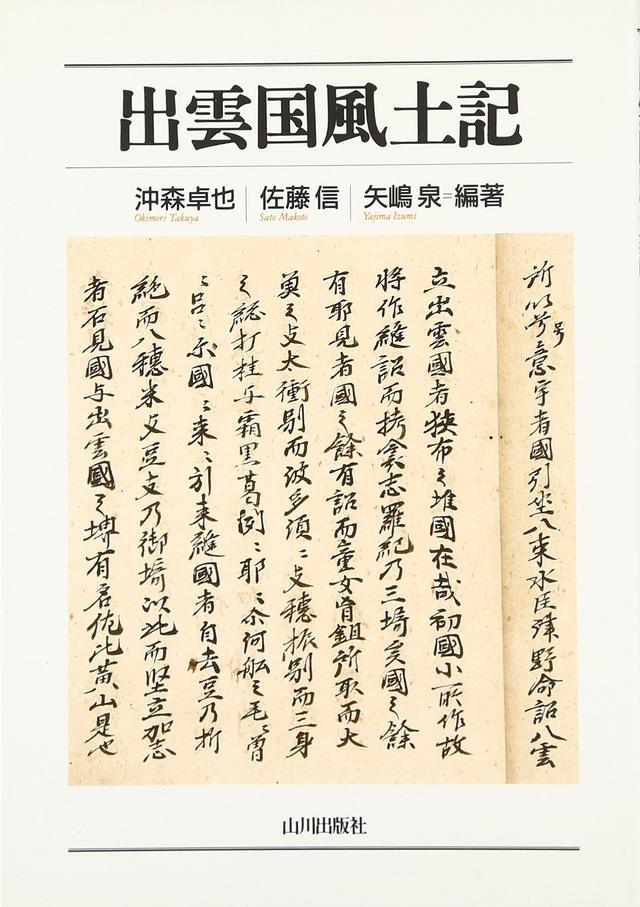 出雲国風土記
沖森卓也 佐藤信 矢嶋泉=編著
Okimori Takuya Sato Makoto Yajima Izumi
所以号意宇者國引坐八束水臣津野命詔八雲
号
立出雲國者狭布之堆國在哉初國小所作故
将作縫詔而栲衾志羅紀乃三埼矣國之餘
有耶見者國之餘有詔而童女胷鉏所取而大
魚之支太衝別而波多須々支穂振別而三身
之綂打挂而霜黒葛闇々耶々尓河舩之毛々曽
々呂々尓國々来々引来縫國者自去豆乃折
絶而八穂米支豆支乃御埼以此而堅立加志
者石見國与出雲國之堺有名佐比賣山是也
山川出版社